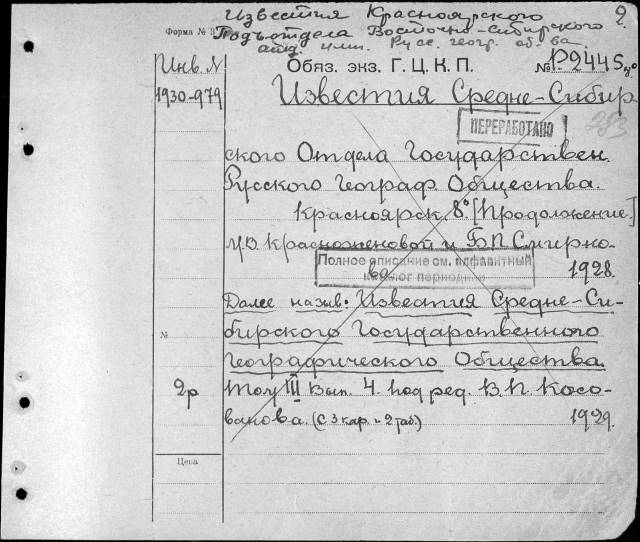 Известия Красноярского 2.
Форма № 3 Подъотдела Восточно-Сибирского
отд. имп. Русс. геогр. об. ва
Инв. № Обяз. экз. Г. Ц. К. П. № Р2445
1930-979 Известия Средне-Сибир
ПЕРЕРАБОТАНО 283
ского Отдела Государствен.
Русского Географ. Общества.
Красноярск. 8°. [Продолжение.]
М.В. Красноженовой и Б.П. Смирно-
Полное описание см. алфавитный
ва. 1928.
каталог периодики
Далее назыв: Известия Средне-Си-
№ бирского Государственного
Географического Общества.
2р Том III Вып. 4. Под ред. В. П. Косо-
ванова. (С 3 кар. и 2 таб.) 1929.
Цена